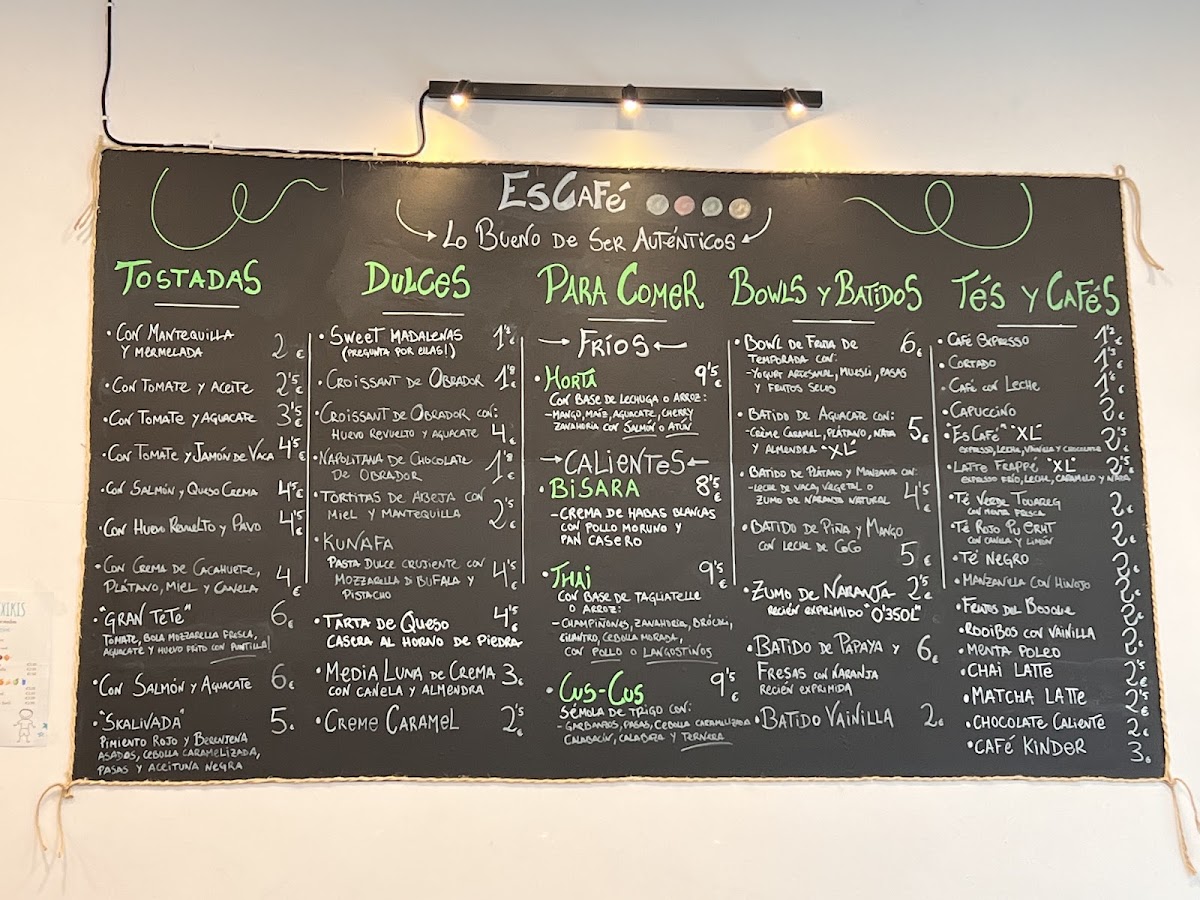 EsCafé
Lo Bueno de Ser Auténticos
Tostadas
• Con Mantequilla
y mermelada 2€
• Con Tomate y Aceite 2'5€
• Con Tomate y Aguacate 3'5€
• Con Tomate y Jamón de Vaca 4'5€
• Con Salmón y Queso Crema 4'5€
• Con Huevo Revuelto y Pavo 4'5€
• Con Crema de Cacahuete,
Plátano, Miel y Canela 4€
• "Gran Tete" 6€
Tomate, Bola Mozzarella Fresca,
Aguacate y Huevo Frito con Puntilla!
• Con Salmón y Aguacate 6€
• "Skalivada" 5€
Pimiento Rojo y Berenjena
Asadas, Cebolla Caramelizada,
Pasas y Aceituna Negra
Dulces
• Sweet Madalenas
(Pregunta por ellas!)
• Croissant de Obrador 1'8€
• Croissant de Obrador con:
Huevo Revuelto y Aguacate 4€
• Napolitana de Chocolate
de Obrador 1'8€
• Tortitas de Abeja con
Miel y Mantequilla 2'5€
• Kunafa
Pasta Dulce Crujiente con
Mozzarella di Bufala y
Pistacho 4'5€
• Tarta de Queso 4'5€
Casera al Horno de Piedra
• Media Luna de Crema 3€
con Canela y Almendra
• Creme Caramel 2'5€
Para Comer
Fríos
• Horta 9'5€
con base de lechuga o arroz:
- Mango, Maíz, Aguacate, Cherry
Zanahoria con Salmón o Atún
Calientes
• Bisara 8'5€
- Crema de Habas Blancas
con Pollo Moruno y
Pan Casero
• Thai 9'5€
con base de Tagliatelle
o Arroz:
- Champiñones, Zanahoria, Brócoli,
Cilantro, Cebolla Morada,
con Pollo o Langostinos
• Cus-Cus 9'5€
Sémola de Trigo con:
- Garbanzos, Pasas, Cebolla Caramelizada
Calabacín, Calabaza y Ternera
Bowls y Batidos
• Bowl de Fruta de 6€
Temporada con:
- Yogurt Artesanal, Muesli, Pasas
y Frutos Secos
• Batido de Aguacate con: 5€
- Crème Caramel, Plátano, Nata
y Almendra "XL"
• Batido de Plátano y Manzana con:
- Leche de Vaca, Vegetal o
Zumo de Naranja Natural 4'5€
• Batido de Piña y Mango
con Leche de Coco 5€
• Zumo de Naranja 2'5€
Recién Exprimido "O'3sol"
• Batido de Papaya y 6€
Fresas con Naranja
Recién Exprimida
• Batido Vainilla 2€
Tés y Cafés
• Café Expresso
• Cortado
• Café con Leche
• Capuccino 2€
• "EsCafé" "XL" 2'5€
Expresso, Leche, Vainilla y Chocolate
• Latte Frappé "XL" 2'5€
Expresso Frío, Leche, Caramelo y Nata
• Té Verde Touareg 2€
con Menta Fresca
• Té Rojo Pu Erht 2€
con Canela y Limón
• Té Negro 2€
• Manzanilla con Hinojo 2€
• Frutos del Bosque 2€
• Rooibos con Vainilla 2€
• Menta Poleo 2€
• Chai Latte 2'5€
• Matcha Latte 2'5€
• Chocolate Caliente 2€
• Café Kinder 3€